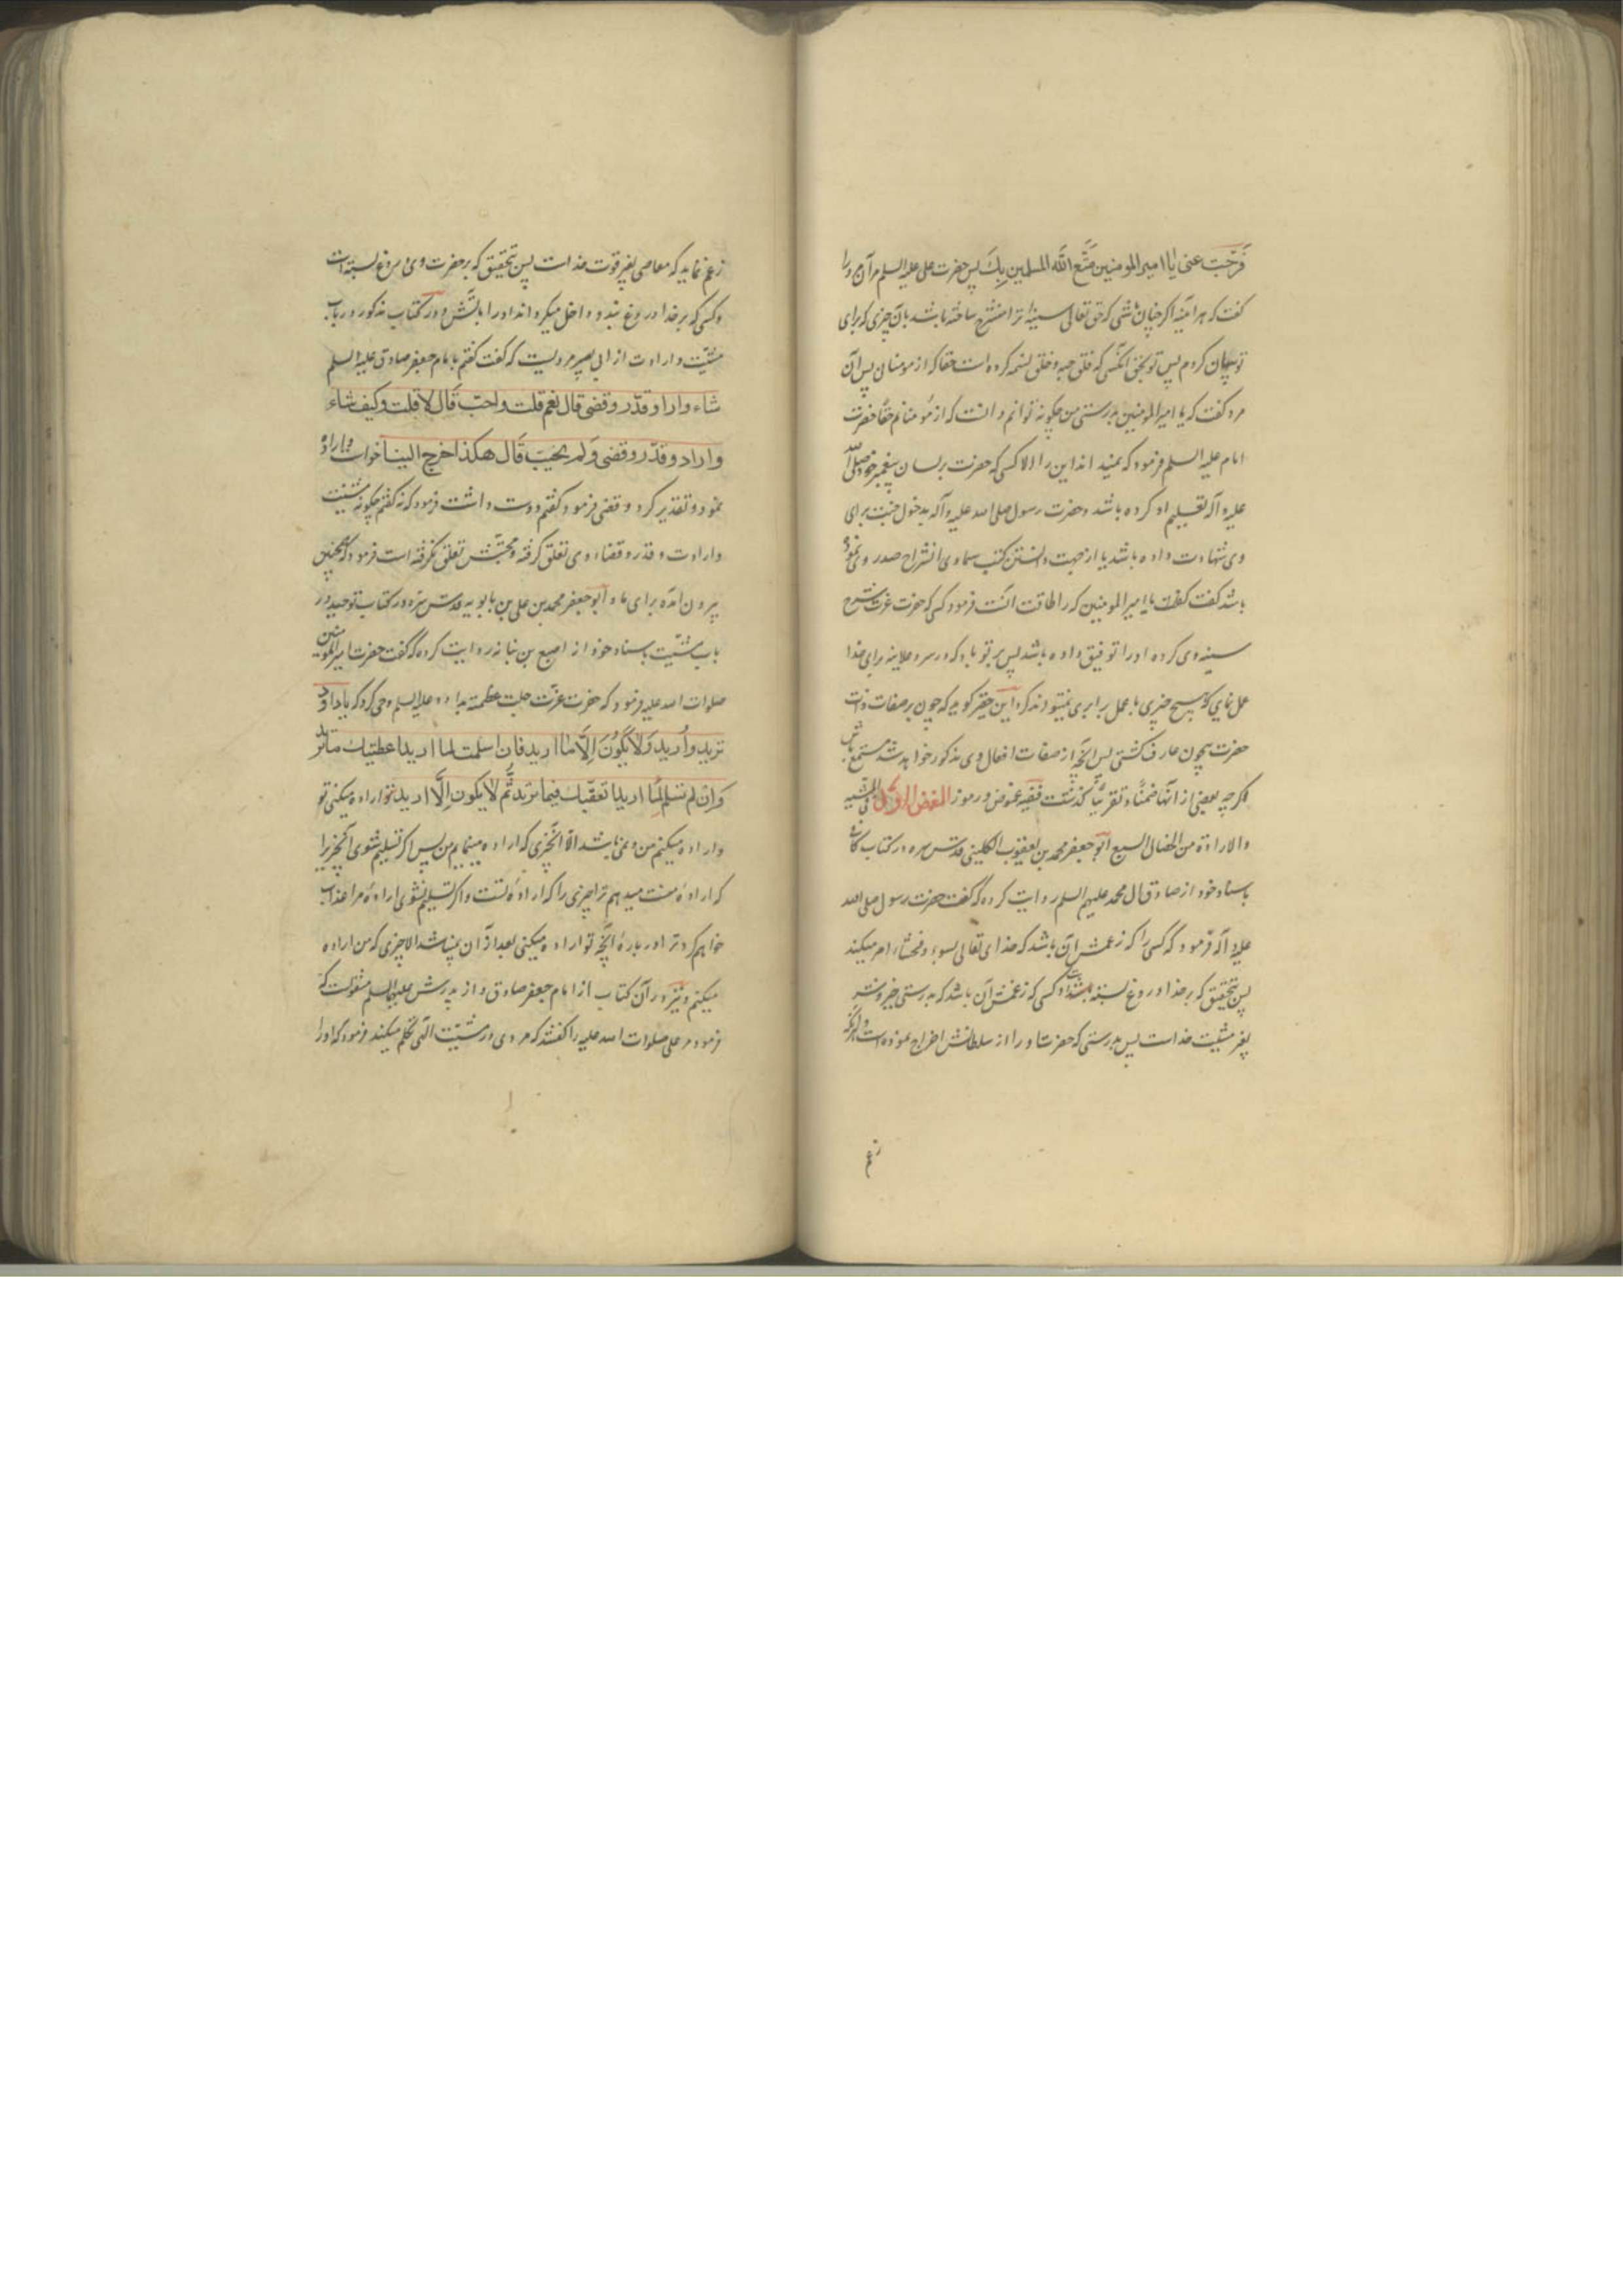 فَرَّجتَ عنی یا امیر المومنین مَتَّع اللّٰه المسلمین بِكَ پس حضرت علی علیه السلم مر آن مرد را
گفت که هر آینه اگر چنان باشی که حق تعالی سینۀ ترا منشرح ساخته باشد بآن چیزی که برای
تو بیان کردم پس تو بحق آنکسی که فلق حبه و خلق نسمه کرده است حقا که از مومنان پس آن
مرد گفت که یا امیر المومنین بدرستی من چکونه توانم دانست که از مؤمنانم حقا حضرت
امام علیه السلم فرمود که نمیداند این را الا کسی که حضرت بر لسان پیغمبر خود صلی الله
علیه و آله تعلیم او کرده باشد و حضرت رسول صلی الله علیه و آله بدخول جنت برای
وی شهادت داده باشد یا از جهت دانستن کتب سماوی انشراح صدر وی نموده
باشد گفت یا امیر المومنین که را طاقت آنست فرمود کسی که حضرت عزت شرح
سینه وی کرده او را توفیق داده باشد پس بر تو باد که در سر و علانیه برای خدا
عمل نمای که هیچ چیزی با عمل برابری نمیتواند کرد این حقیر گوید که چون بر صفات ذات
حضرت بیچون عارف گشتی پس آنچه از صفات افعال وی مذکور خواهد شد مستمع باش
اگرچه بعضی از آنها ضمناً و تقریباً گذشت ففیه غموض و رموز الغمض الاول فی المشیه
والارادة من الخصال السبع ابو جعفر محمد بن یعقوب الکلینی قدس سره در کتاب کافی
باسناد خود از صادق آل محمد علیهم السلم روایت کرده که گفت حضرت رسول صلی الله
علیه و آله فرمود که کسی را که زعمش آن باشد که خدای تعالی بسوء و فحشاء امر میکند
پس بتحقیق که بر خدا دروغ بسته باشد و کسی که زعمش آن باشد که بدرستی خیر و شر
بغیر مشیت خداست پس بدرستی که حضرت او را از سلطانش اخراج نموده است و آنکه
زعم
زعم نماید که معاصی بغیر قوت خداست پس بتحقیق که بر حضرت وی دروغ بسته است
و کسی که بر خدا دروغ بندد داخل میکرداند او را بآتش و در کتاب مذکور در باب
مشیّت و ارادت از ابی بصیر مرویست که گفت گفتم بامام جعفر صادق علیه السلم
شاء واراد وقدّر وقضی قال نعم قلت واحبّ قَال لا قلت وکیف شاء
واراد وقدّر وقضی وَلم یحبّ قَال هکذا خرج الینا خواست و اراده
نمود و تقدیر کرد و قضی فرمود گفتم دوست داشت فرمود که نه گفتم چکونه مشیت
و ارادت و قدر و قضاء وی تعلق گرفته و محبتش تعلق نگرفته است فرمود که همچنین
بیرون آمده برای ما و ابو جعفر محمد بن علی بن بابویه قدس سره در کتاب توحید در
باب مشیّت باسناد خود از اصبغ بن نباته روایت کرده که گفت حضرت امیر المومنین
صلوات الله علیه فرمود که حضرت عزت جلت عظمته بداود علیه السلم وحی کرد که یا داود
ترید وأُرید وَلا یَکُونَ اِلّا مٰا ارید فان اسلمت لما ارید اعطیتك ما ترید
وَان لم تسلم لِمٰا ارید اتعبتك فیما ترید ثُمَّ لا یکون اِلّا ما ارید تو اراده میکنی تو
و اراده میکنم من و نمیباشد الا آنچیزی که اراده مینمایم من پس اگر تسلیم شوی آنچیزیرا
که ارادۀ منست میدهم ترا چیزی را که ارادۀ تست و اگر تسلیم نشوی ارادۀ مرا عذاب
خواهم کرد ترا در بارۀ آنچه تو اراده میکنی بعد از آن نمیباشد الا چیزی که من اراده
میکنم و نیز در آن کتاب از امام جعفر صادق و از پدرش علیهما السلم منقولست که
فرمود مر علی صلوات الله علیه را گفتند که مردی در مشیّت الهی تکلم میکند فرمود که او را